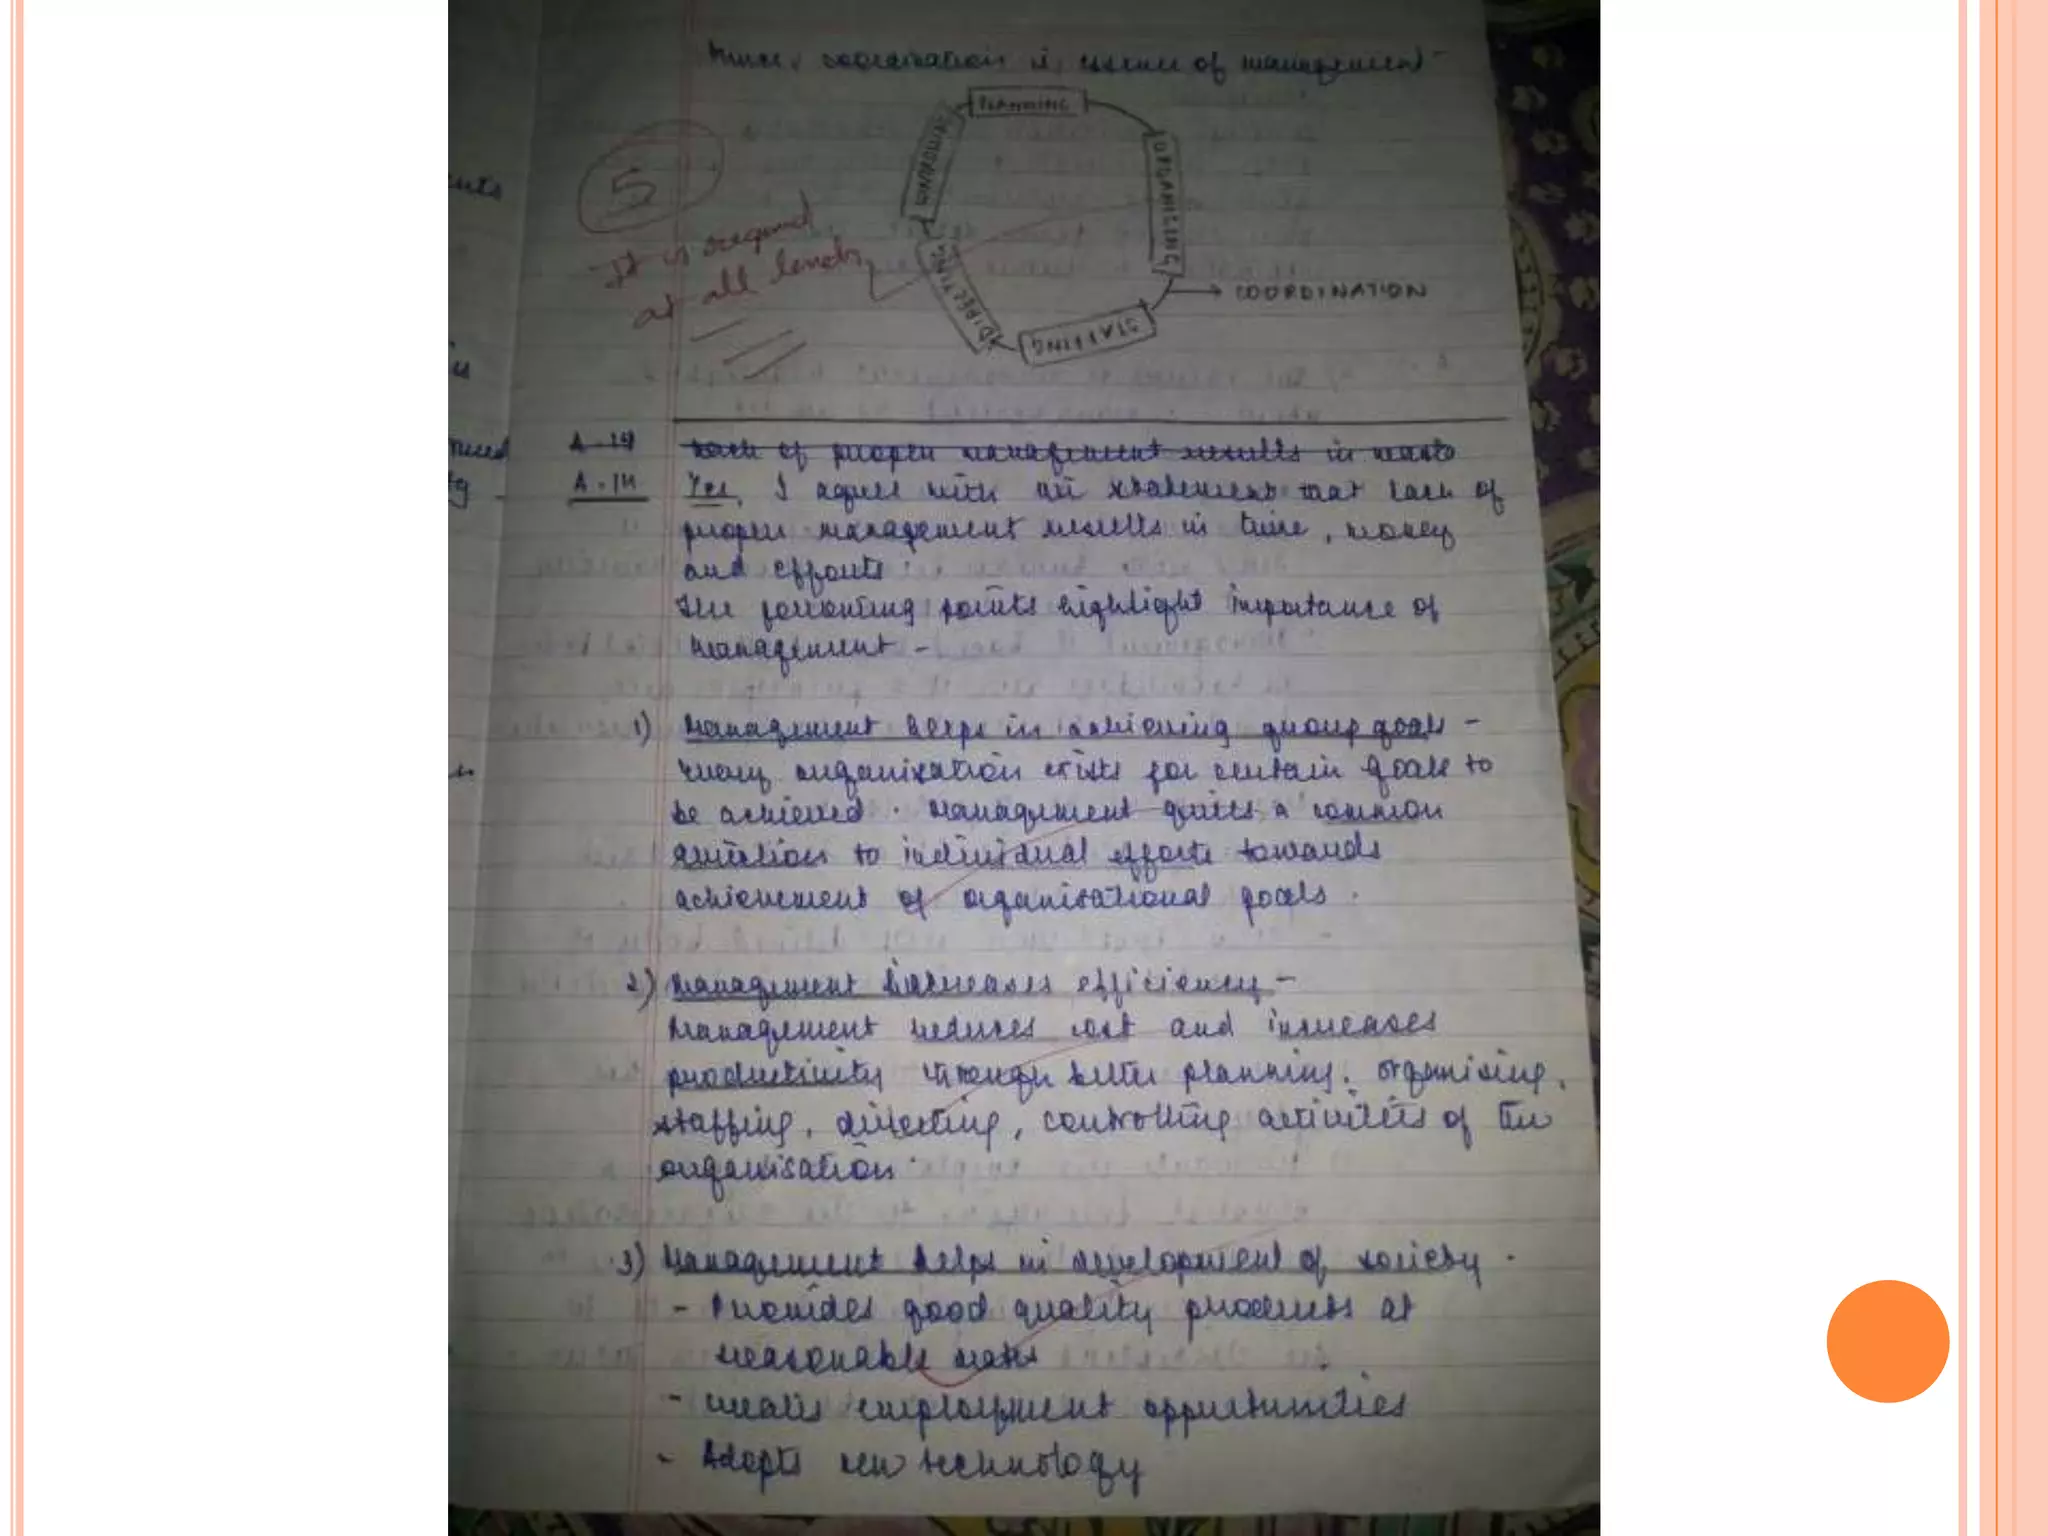 Hence, coordination is essence of management-
PLANNING
ORGANISING
STAFFING
DIRECTING
CONTROLLING
→ COORDINATION
5
It is required
at all levels
ents
is
need
A-14 Lack of proper management results in waste
A-14 Yes, I agree with the statement that lack of
proper management results in time, money
and efforts.
The following points highlight importance of
management -
1) Management helps in achieving group goals -
Every organisation exists for certain goals to
be achieved. Management gives a common
direction to individual efforts towards
achievement of organisational goals.
2) Management increases efficiency -
Management reduces cost and increases
productivity through better planning, organising,
staffing, directing, controlling activities of the
organisation.
3) Management helps in development of society.
- Provides good quality products at
reasonable rates
- creates employment opportunities
- Adopts new technology